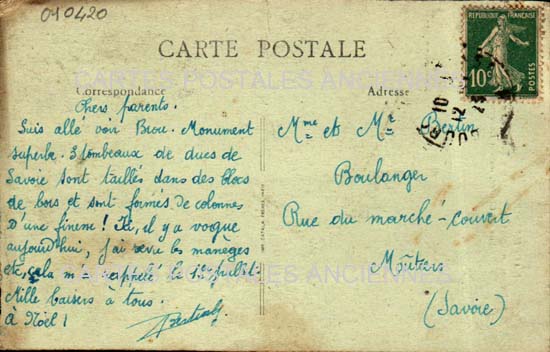 010420
CARTE POSTALE
CARTES POSTALES ANCIENNES
Correspondance
Adresse
REPUBLIQUE FRANÇAISE
10c
POSTES
Chers parents.
Suis allé voir Brou. Monument
superbe. 3 tombeaux de ducs de
Savoie sont taillés dans des blocs
de bois et sont formés de colonnes
d'une finesse ! Ici, il y a vogue
aujourd'hui, j'ai revu les manèges
etc, cela m'a rappelé le 14 juillet
Mille baisers à tous.
à Noël !
Mme et Mr Berlin
Boulanger
Rue du marché-couvert
Moûtiers
(Savoie)
CARTES POSTALES ANCIENNES